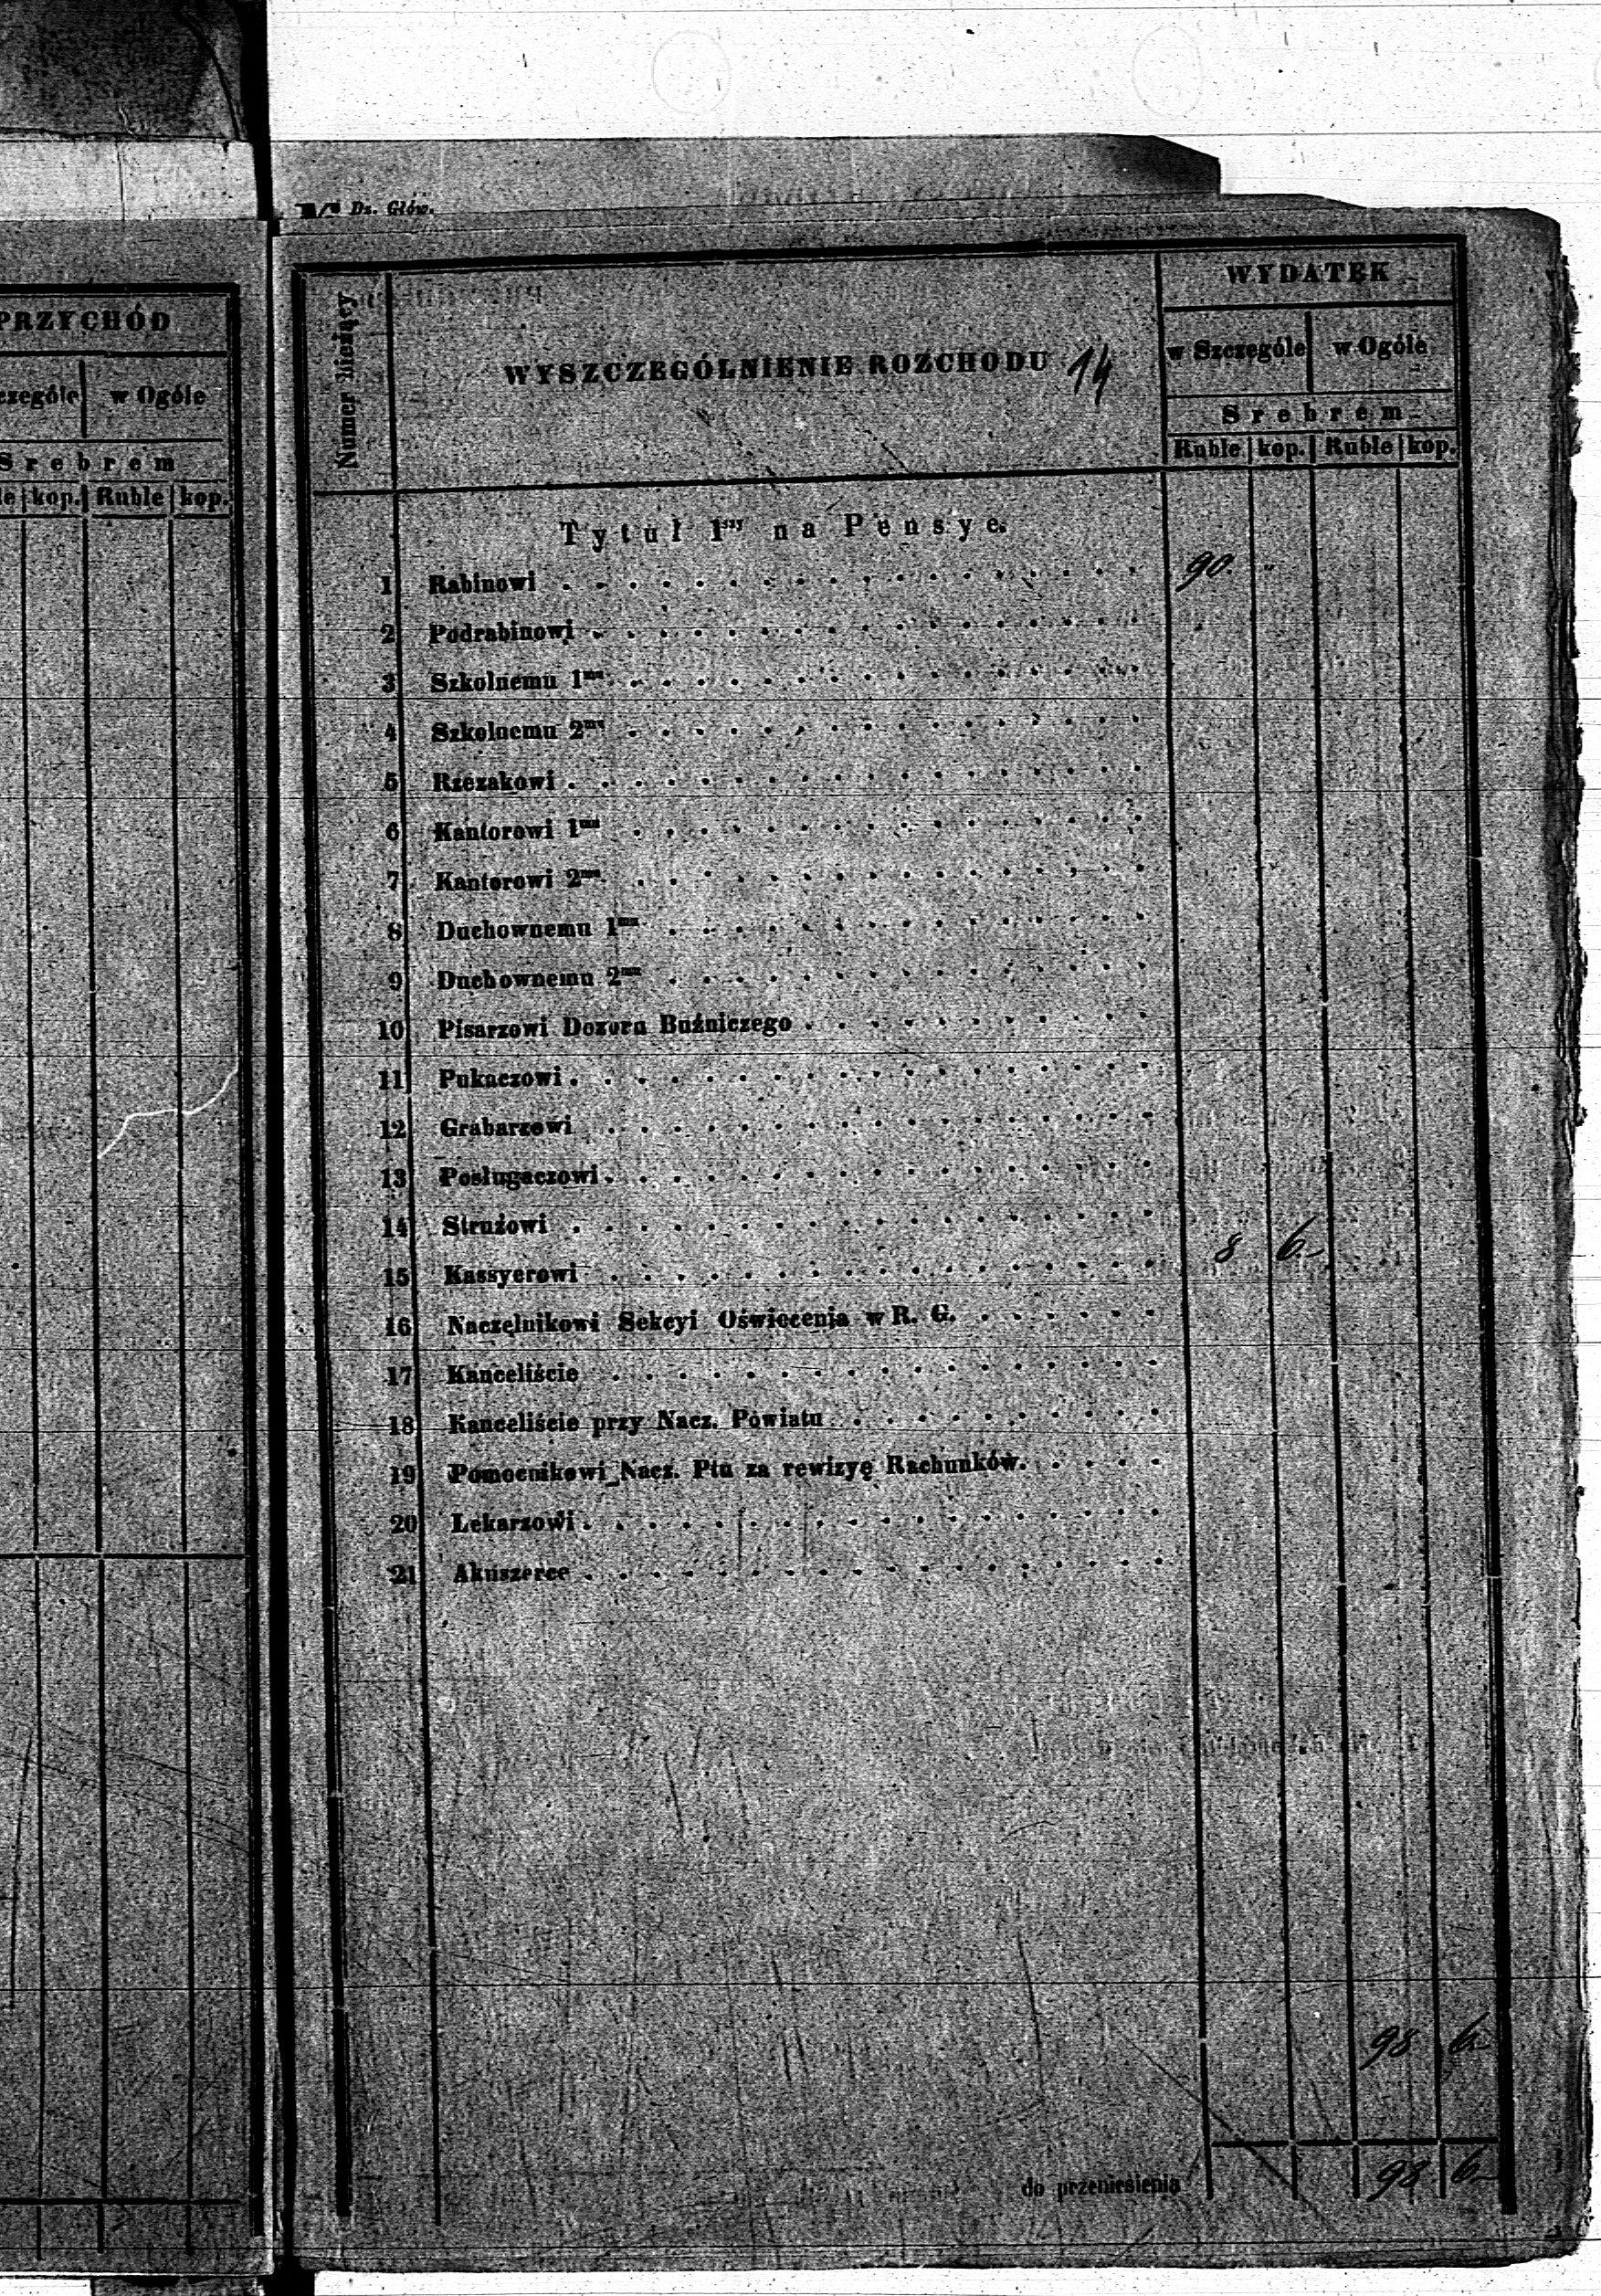 PRZYCHÓD
w Ogóle
Srebrem
kop. Ruble kop.
Dz. Głów.
Numer bieżący
WYSZCZEGÓLNIENIE ROZCHODU 14
WYDATEK
w Szczególe w Ogóle
Srebrem
Ruble kop. Ruble kop.
Tytuł 1szy na Pensye.
1 Rabinowi 90 "
2 Podrabinowi
3 Szkolnemu 1mu
4 Szkolnemu 2mu
5 Rzezakowi
6 Kantorowi 1mu
7 Kantorowi 2mu
8 Duchownemu 1mu
9 Duchownemu 2mu
10 Pisarzowi Dozoru Bużniczego
11 Pukaczowi
12 Grabarzowi
13 Posługaczowi
14 Strużowi
15 Kassyerowi 8 6
16 Naczelnikowi Sekcyi Oświecenia w R. G.
17 Kanceliście
18 Kanceliście przy Nacz. Powiatu
19 Pomocnikowi Nacz. Ptu za rewizyę Rachunków.
20 Lekarzowi
21 Akuszerce
98 6
do przeniesienia 98 6